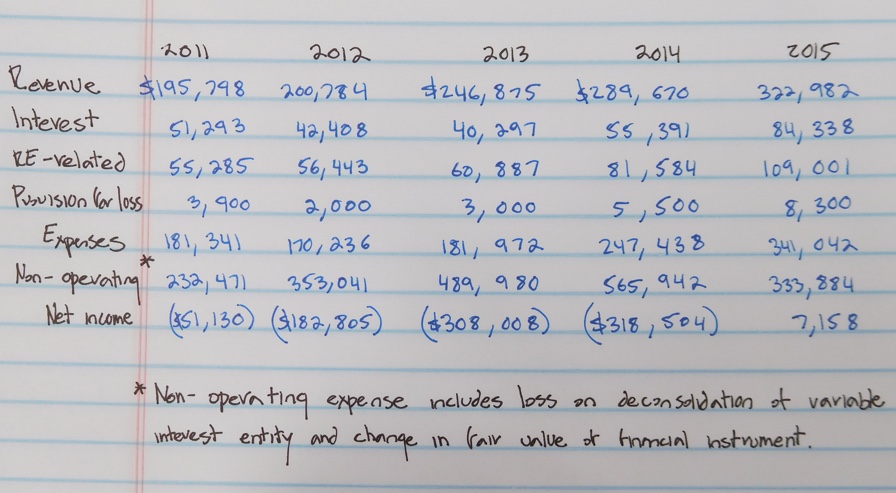 2011 2012 2013 2014 2015
Revenue $195,798 200,784 $246,875 $289,670 322,982
Interest 51,293 42,408 40,297 55,391 84,338
RE-related 55,285 56,443 60,887 81,584 109,001
Provision for loss 3,900 2,000 3,000 5,500 8,300
Expenses 181,341 170,236 181,972 247,438 341,042
Non-operating* 232,471 353,041 489,980 565,942 333,884
Net income ($51,130) ($182,805) ($308,008) ($318,504) 7,158
* Non-operating expense includes loss on deconsolidation of variable
interest entity and change in fair value of financial instrument.